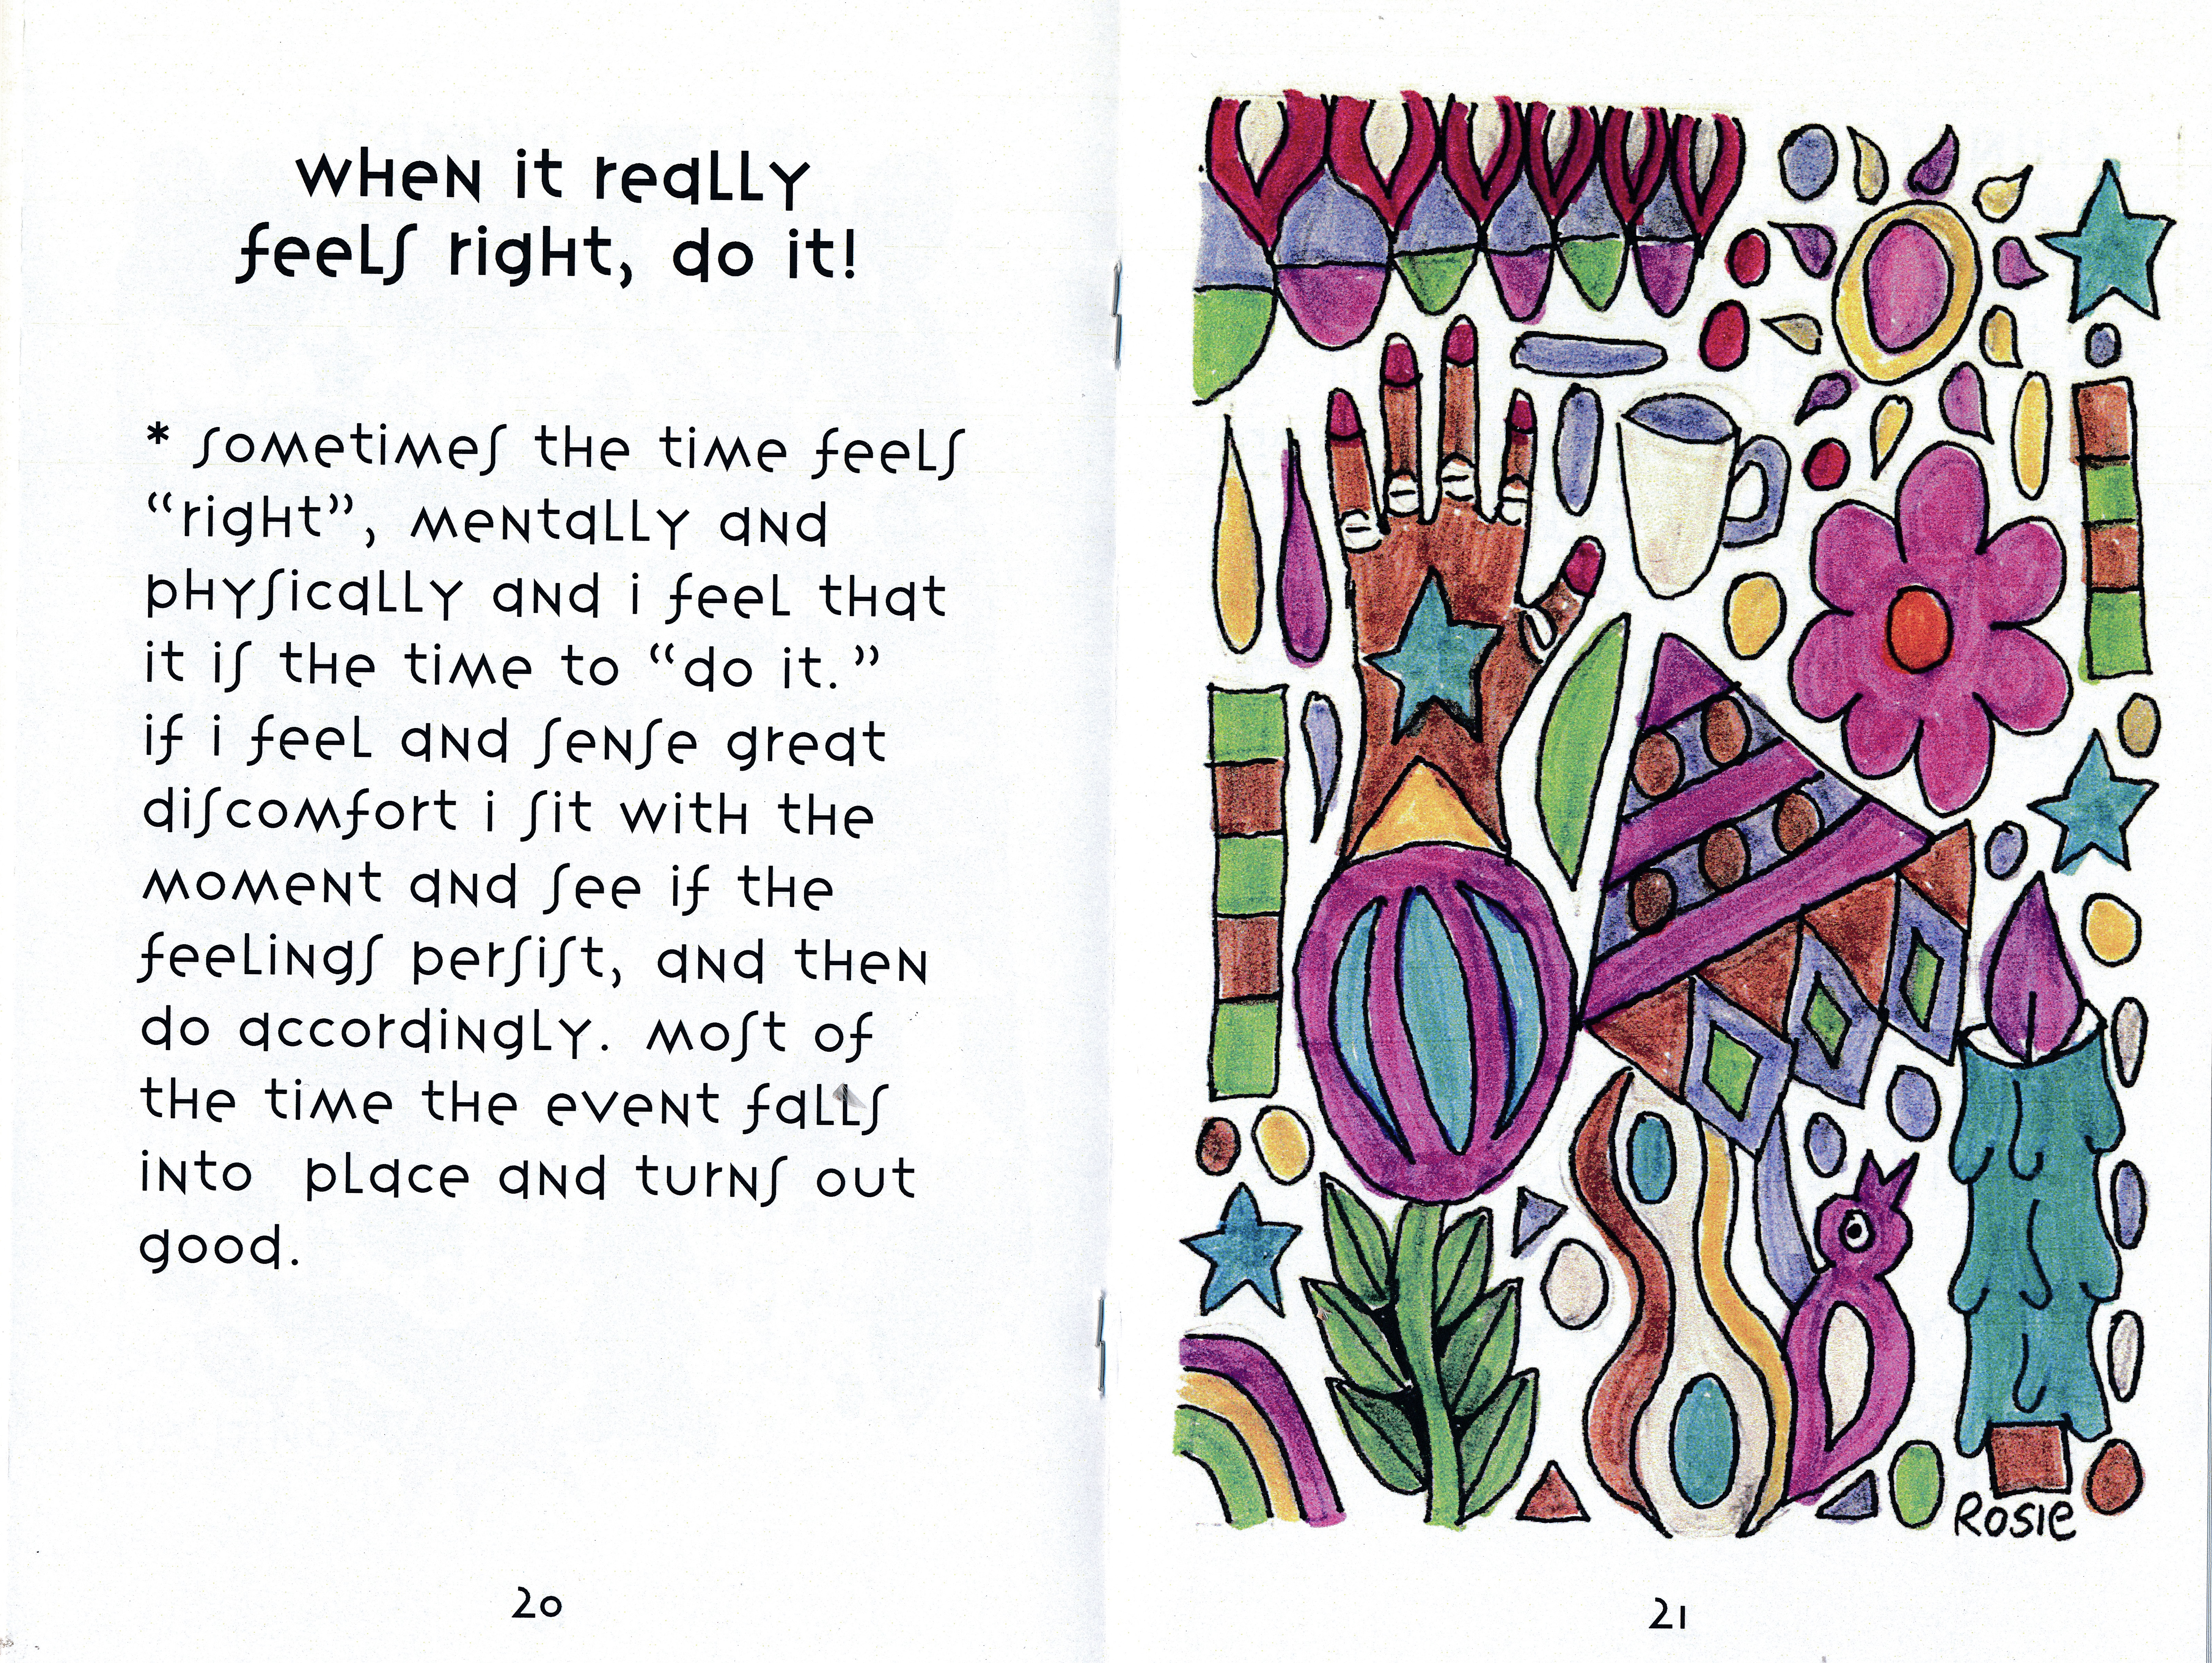 when it really
feels right, do it!
* sometimes the time feels
“right”, mentally and
physically and i feel that
it is the time to “do it.”
if i feel and sense great
discomfort i sit with the
moment and see if the
feelings persist, and then
do accordingly. most of
the time the event falls
into place and turns out
good.
20
Rosie
21